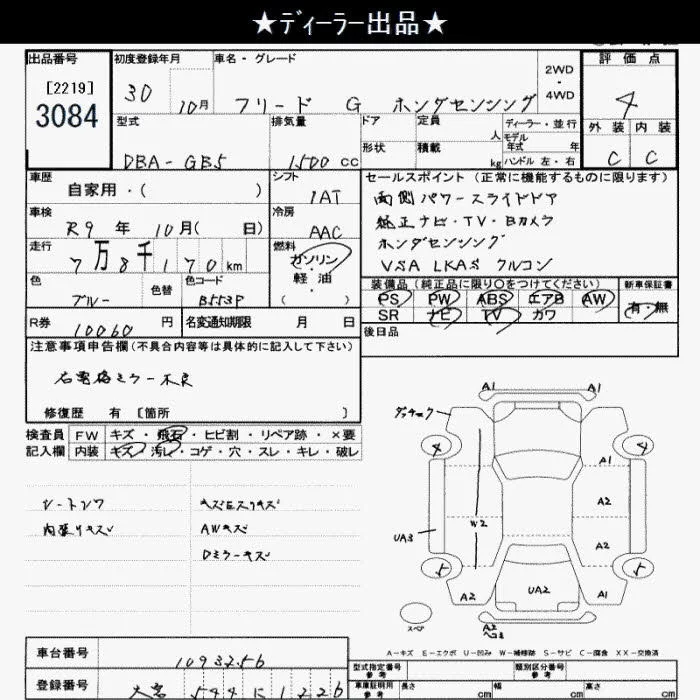 ★ディーラー出品★
出品番号
[2219]
3084
初度登録年月
30
10月
車名・グレード
フリード G ホンダセンシング
2WD
・
4WD
評価点
4
外装 内装
C C
型式
DBA-GB5
排気量
1500 cc
ドア
形状
定員
人
積載
kg
ディーラー・並行
モデル
年式 年
ハンドル 左・右
車歴
自家用・( )
シフト
1AT
車検
R9 年 10月( 日)
冷房
AAC
走行
7万8千170km
燃料
ガソリン
・
軽油
( )
色
ブルー
色替
色コード
B553P
R券
10060 円
名変通知期限 月 日
セールスポイント(正常に機能するものに限ります)
両側パワースライドドア
純正ナビ・TV・Bカメラ
ホンダセンシング
VSA LKAS クルコン
装備品(純正品に限り○をつけてください)
PS PW ABS エアB AW
SR ナビ TV カワ
新車保証書
有・無
後日品
注意事項申告欄(不具合内容等は具体的に記入して下さい)
右電格ミラー不良
修復歴 有 [箇所 ]
検査員
記入欄
FW キズ・飛石・ヒビ割・リペア跡・×要
内装 キズ・汚レ・コゲ・穴・スレ・キレ・破レ
シートシワ
内張りキズ
AWキズ
Dミラーキズ
A1 A1
4 4
A1
A2
W2
UA3
A2
5 5
A2
UA2
A1
スペア
A2
ヘコミ
A-キズ E-エクボ U-凹み W-補修跡 S-サビ C-腐食 XX-交換済
車台番号
1093256
登録番号
大宮 544 に 1226
型式指定番号
参考
類別区分番号
参考
車庫証明用
参考
長さ cm
幅 cm
高さ cm